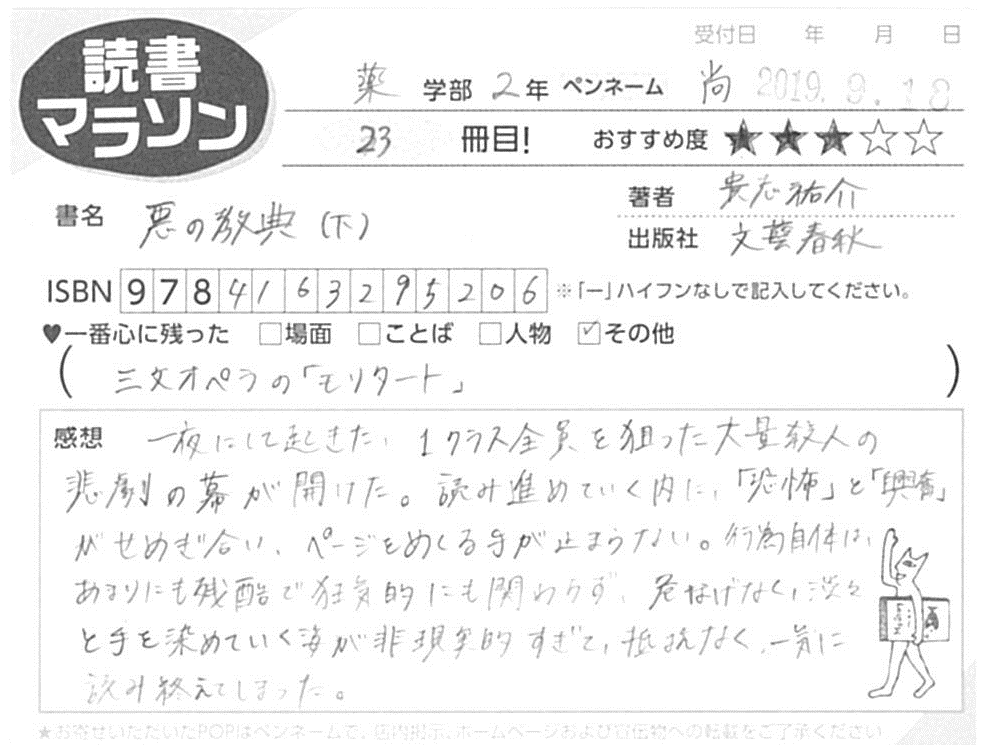 読書
マラソン
受付日 年 月 日
薬 学部 2年 ペンネーム 尚 2019.9.18
23 冊目! おすすめ度 ★★★☆☆
書名 悪の教典(下)
著者 貴志祐介
出版社 文藝春秋
ISBN 9784163295206 ※「ー」ハイフンなしで記入してください。
♥一番心に残った □場面 □ことば □人物 ☑その他
(三文オペラの「モリタート」)
感想 一夜にして起きた、1クラス全員を狙った大量殺人の
悲劇の幕が開けた。読み進めていく内に、「恐怖」と「興奮」
がせめぎ合い、ページをめくる手が止まらない。行為自体は、
あまりにも残酷で狂気的にも関わらず、危なげなく、淡々
と手を染めていく姿が非現実的すぎて、抵抗なく、一気に
読み終えてしまった。
★お寄せいただいたPOPはペンネームで、店内掲示、ホームページおよび宣伝物への転載をご了承ください